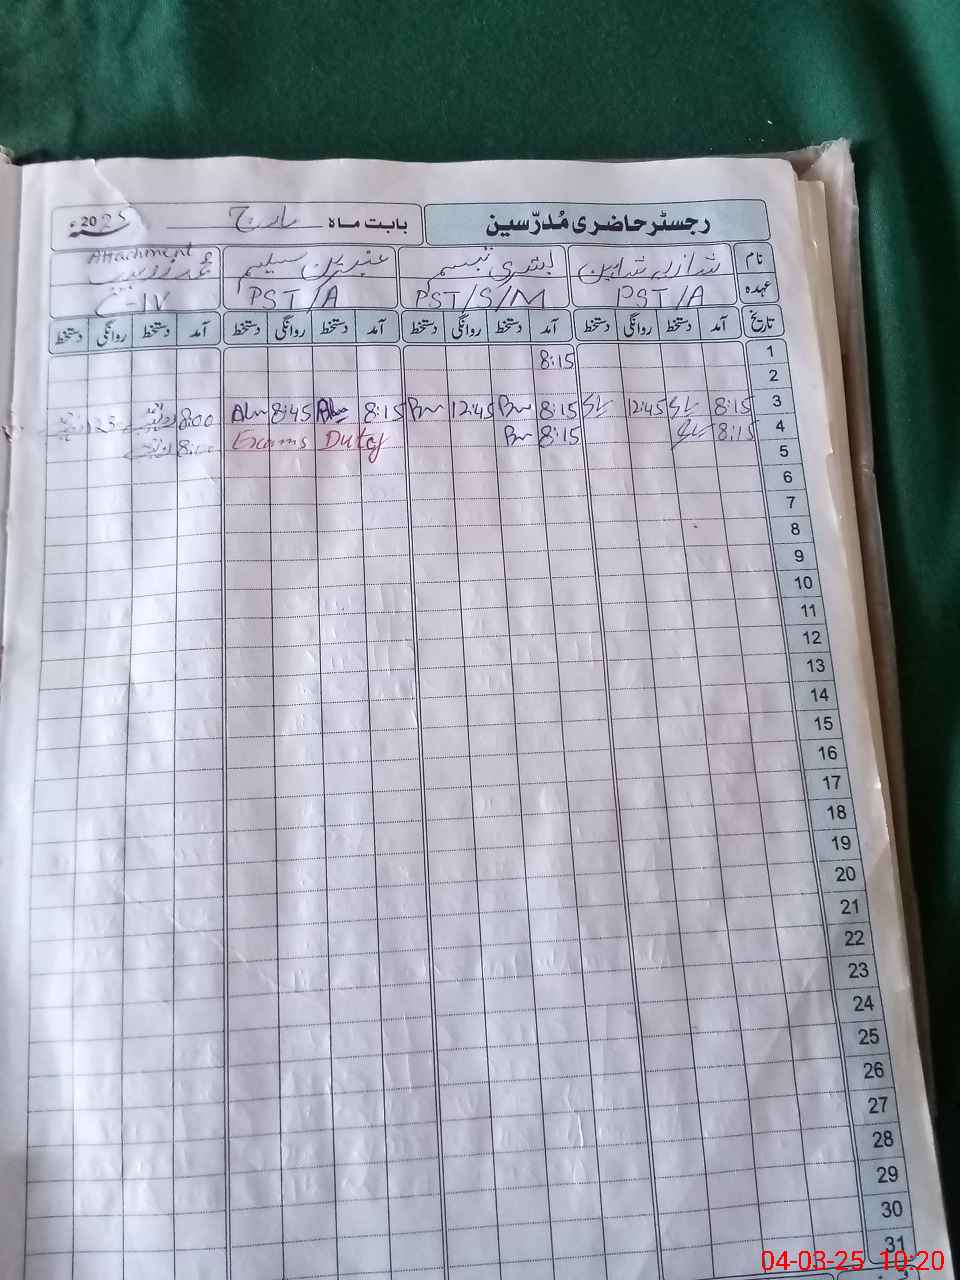 رجسٹر حاضری مُدرّسین بابت ماہ مارچ 2025ء
نام شازیہ شاہین بشریٰ تبسم عنبرین سلیم Attachment
عہدہ PST/A PST/S/M PST/A C-IV
تاریخ آمد دستخط روانگی دستخط آمد دستخط روانگی دستخط آمد دستخط روانگی دستخط آمد دستخط روانگی دستخط
1 8:15
2
3 8:15 12:45 8:15 12:45 8:15 8:45 8:00
4 8:15 8:15 Exams Duty
5
6
7
8
9
10
11
12
13
14
15
16
17
18
19
20
21
22
23
24
25
26
27
28
29
30
31
04-03-25 10:20